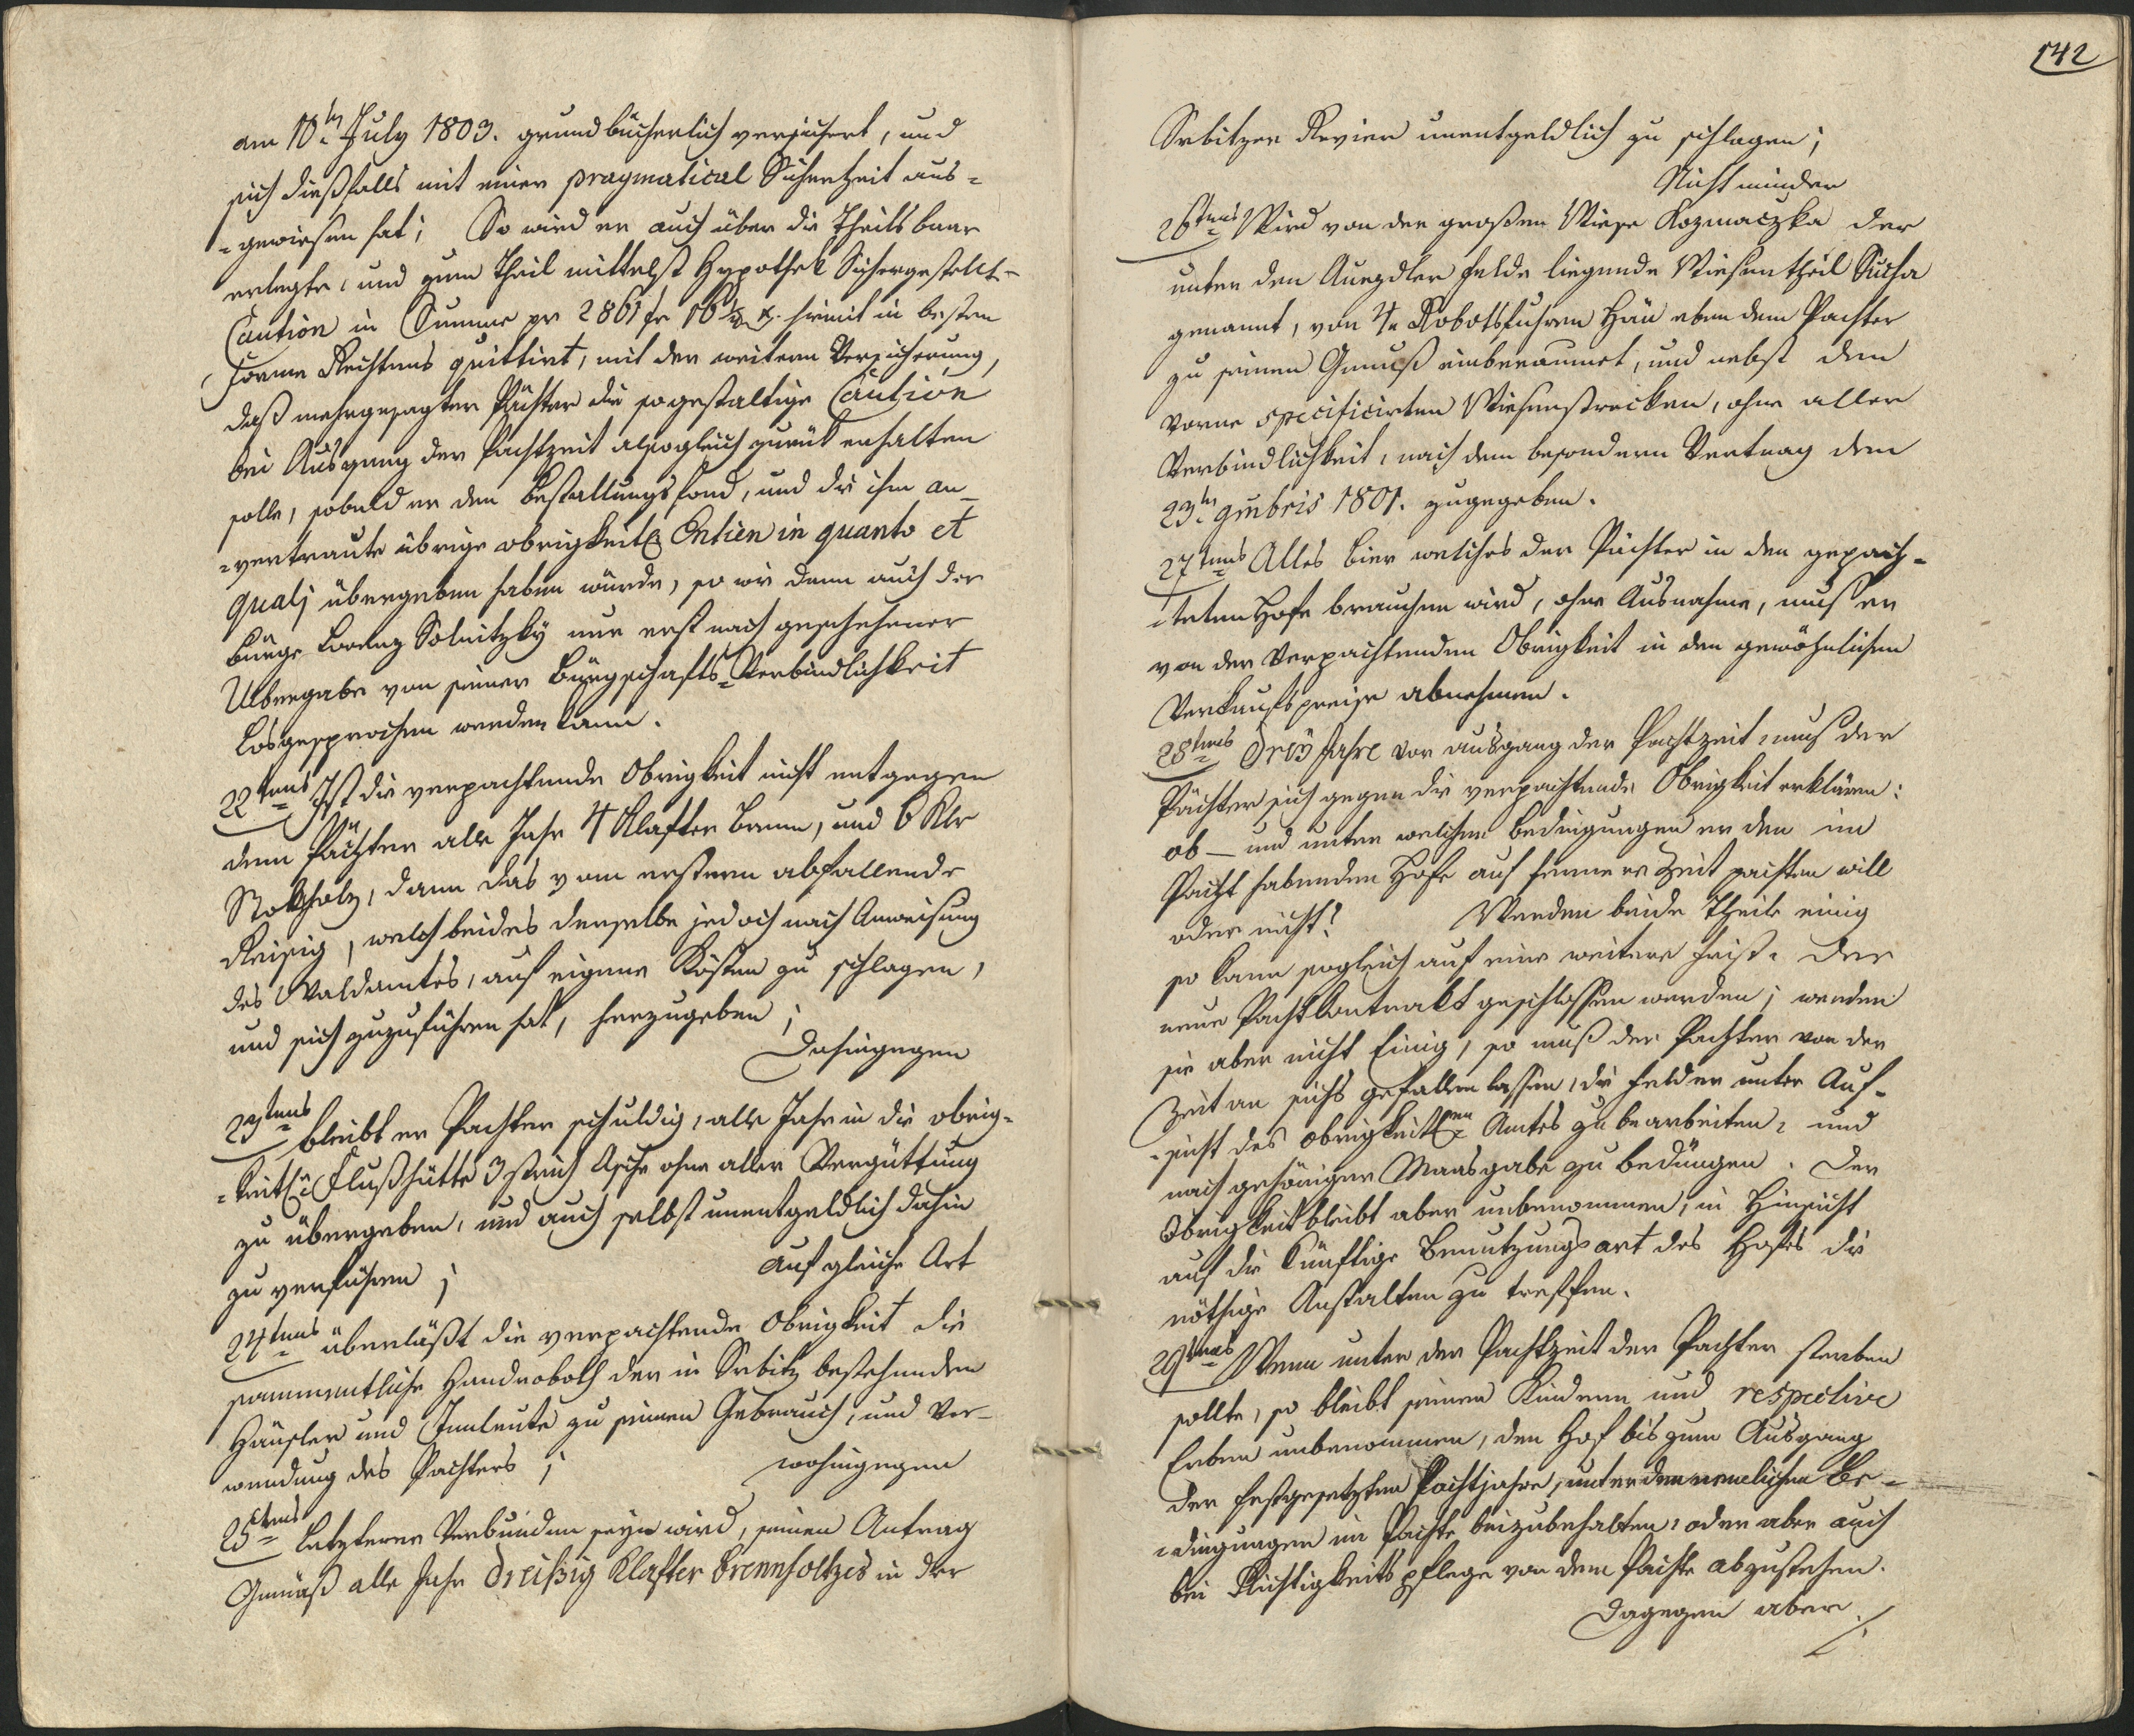 am 10ten July 1803. grundbücherlich versichert, und
sich dießfalls mit einer pragmatical Sicherheit aus-
-gewiesen hat; So wird er auch über die Theils baar
erlegte, und zum Theil mittelst Hypothek Sichergestellt-
Caution in Summe pr 2861 fr 16 ½ x. hiemit in bester
Forme Rechtens quittirt, mit der weitern Versicherung,
daß mehrgesagter Pächter die sogestaltige Caution
bei Ausgang der Pachtzeit alsogleich zurük erhalten
solle, sobald er den Bestallungsfond, und die ihm an-
-vertraute übrige obrigkeitl. Entien in quanto et
quali übergeben haben würde, so wie dann auch der
Bürge Lorenz Solnitzky nur erst nach geschehener
Uibergabe von seiner Bürgschafts-Verbindlichkeit
losgesprochen werden kann.
22tens Ist die verpachtende Obrigkeit nicht entgegen
dem Pächter alle Jahr 4 Klafter Brenn, und 6 Klr
Stokholz, dann das vom erstern abfallende
Reisig, welch beides derselbe jedoch nach Anweisung
des Waldamtes, auf eigene Kösten zu schlagen,
und sich zuzuführen hat, herzugeben;
Dahingegen
23tens bleibt er Pachter schuldig, alle Jahr in die obrig-
-keitl. Flußhütte 3 strich Asche ohne aller Vergüttung
zu übergeben, und auch selbst unentgeldlich dahin
zu verführen; auf gleiche Art
24tens überläßt die verpachtende Obrigkeit die
sammentliche Handroboth der in Srbitz bestehenden
Häusler und Innleute zu seinen Gebrauch, und Ver-
wendung des Pachters; wohingegen
25tens Letzterer Verbunden seyn wird, seinen Antrag
Gemäß alle Jahr dreißig Klafter Brennholtzes in der
142
Srbitzer Revier unentgeldlich zu schlagen;
Nicht minder
26tens Wird von der großen Wiese Kozmaczka der
unter den Auezdler Felde liegende Wiesentheil Sucha
genannt, von 4 Robotsfuhren Häu eben dem Pachter
zu seinen Genuß einberaumet, und nebst den
vorne specificirten Wiesenstrecken, ohne aller
Verbindlichkeit, nach dem besondern Vertrag dem
23ten 9mbris 1801. zugegeben.
27tens Alles Bier welches der Pächter in den gepach-
-teten Hofe brauchen wird, ohne Ausnahme, muß er
von der Verpachtenden Obrigkeit in den gewöhnlichen
Verkaufspreise abnehmen.
28tens Drey Jahre vor ausgang der Pachtzeit, muß der
Pächter sich gegen die verpachtende Obrigkeit erklären:
ob - und unter welchen Bedingungen er den im
Pacht habenden Hofe auf fernere Zeit pachten will
oder nicht? Werden beide Theile einig
so kann sogleich auf eine weitere Frist. der
neue Pachtkontrakt geschlossen werden; werden
sie aber nicht Einig, so muß der Pachter von der
Zeit an sichs gefallen lassen, die Felder unter Auf-
-sicht des obrigkeitlen Amtes zu bearbeiten, und
nach gehöriger Maasgabe zu bedüngen. Der
Obrigkeit bleibt aber unbenommen, in Hinsicht
auf die künftige Benutzungsart des Hofes die
nöthige Anstalten zu treffen.
29tens Wenn unter der Pachtzeit der Pachter sterben
sollte, so bleibt seinen Kindern und respective
Erben unbenommen, den Hof bis zum Ausgang
der festgesetzten Pachtjahre, unter den nemlichen Be-
-dingungen im Pachte beizubehalten, oder aber auch
bei Richtigkeits pflege von dem Pachte abzustehen.
Dagegen aber ./.